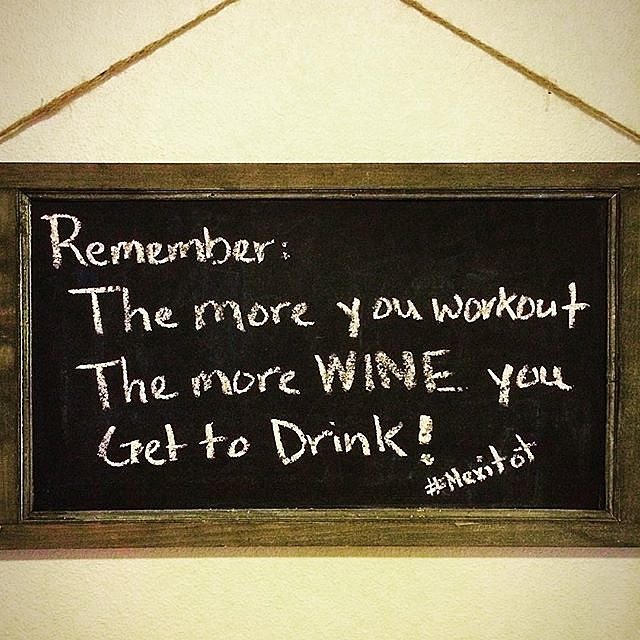 Remember:
The more you workout
The more WINE you
Get to Drink!
#Mexitot